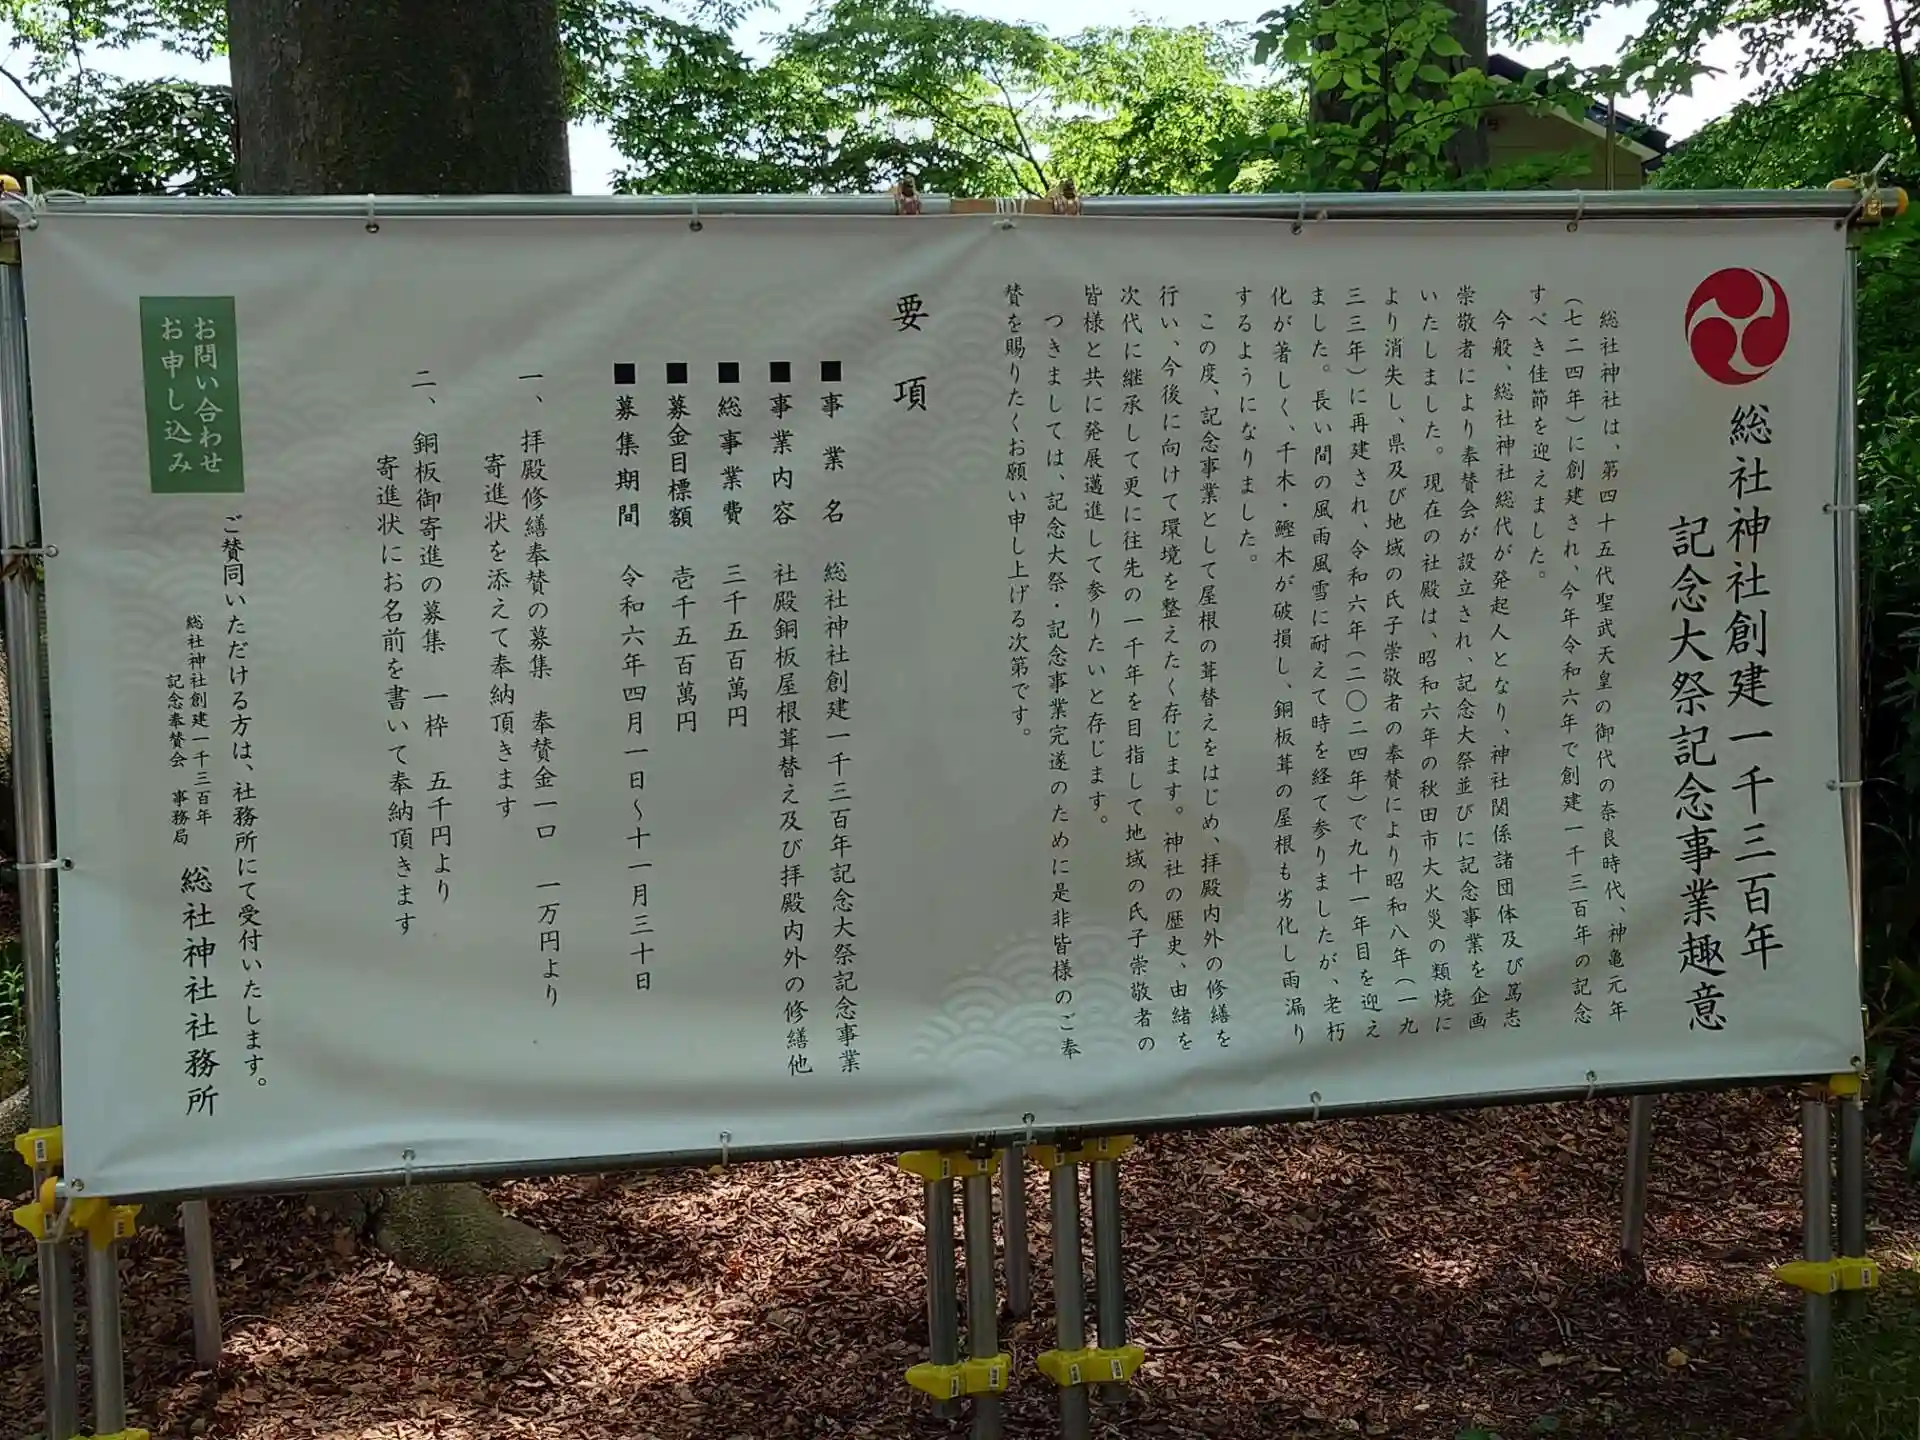 総社神社創建一千三百年
記念大祭記念事業趣意
総社神社は、第四十五代聖武天皇の御代の奈良時代、神亀元年
(七二四年)に創建され、今年令和六年で創建一千三百年の記念
すべき佳節を迎えました。
今般、総社神社総代が発起人となり、神社関係諸団体及び篤志
崇敬者により奉賛会が設立され、記念大祭並びに記念事業を企画
いたしました。現在の社殿は、昭和六年の秋田市大火災の類焼に
より消失し、県及び地域の氏子崇敬者の奉賛により昭和八年(一九
三三年)に再建され、令和六年(二〇二四年)で九十一年目を迎え
ました。長い間の風雨風雪に耐えて時を経て参りましたが、老朽
化が著しく、千木・鰹木が破損し、銅板葺の屋根も劣化し雨漏り
するようになりました。
この度、記念事業として屋根の葺替えをはじめ、拝殿内外の修繕を
行い、今後に向けて環境を整えたく存じます。神社の歴史、由緒を
次代に継承して更に往先の一千年を目指して地域の氏子崇敬者の
皆様と共に発展邁進して参りたいと存じます。
つきましては、記念大祭・記念事業完遂のために是非皆様のご奉
賛を賜りたくお願い申し上げる次第です。
要項
■事業名 総社神社創建一千三百年記念大祭記念事業
■事業内容 社殿銅板屋根葺替え及び拝殿内外の修繕他
■総事業費 三千五百萬円
■募金目標額 壱千五百萬円
■募集期間 令和六年四月一日〜十一月三十日
一、拝殿修繕奉賛の募集 奉賛金一口 一万円より
寄進状を添えて奉納頂きます
二、銅板御寄進の募集 一枠 五千円より
寄進状にお名前を書いて奉納頂きます
お問い合わせ
お申し込み
ご賛同いただける方は、社務所にて受付いたします。
総社神社創建一千三百年
記念奉賛会 事務局
総社神社社務所